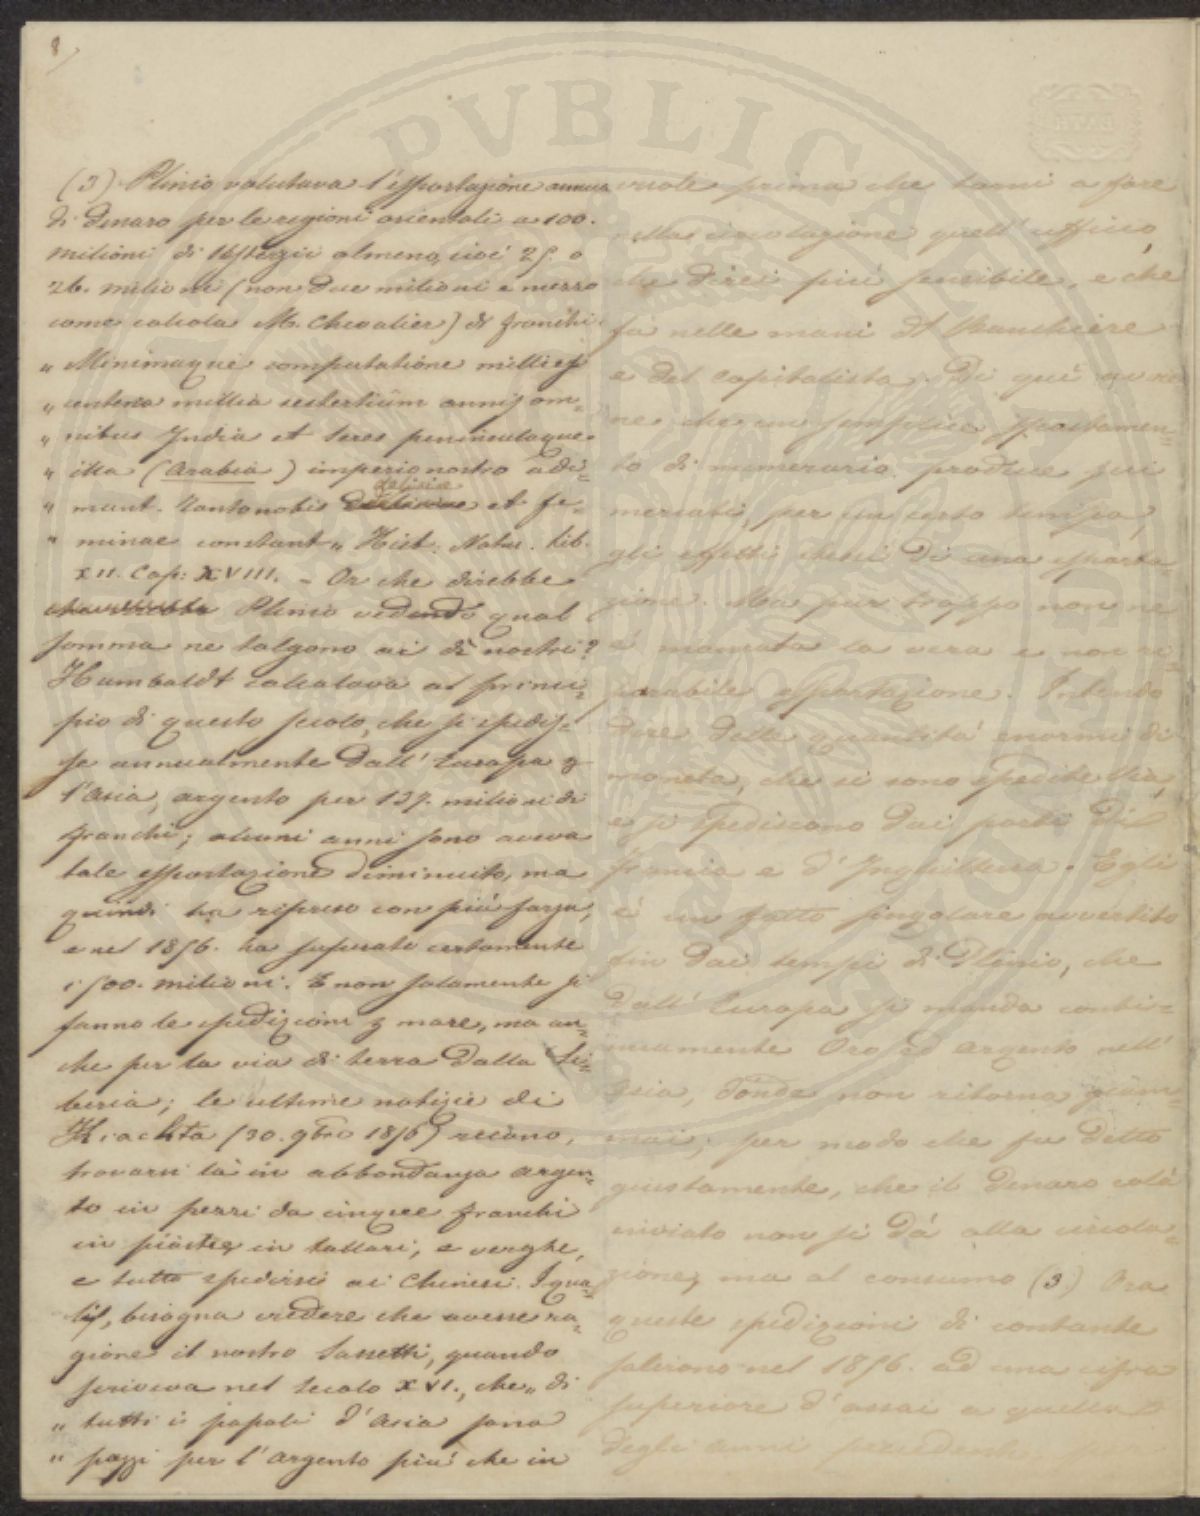 8
(3) Plinio valutava l'esportazione annua
di denaro per le regioni orientali a 100.
milioni di sesterzii almeno, cioè 25. o
26. milioni (non due milioni e mezzo
come calcola M. Chevalier) di franchi.
„ Minimaque computatione millies
„ centena millia sestertiûm annis om=
„ nibus India et Seres peninsulaque
„ illa (Arabia) imperio nostro adi=
„ munt. Tanto nobis deliciae et fe=
„ minae constant „ Hist. Natur. lib.
XII. Cap: XVIII. - Or che direbbe
Plinio vedendo qual
somma ne tolgono ai dì nostri?
Humboldt calcolava al princi=
pio di questo secolo, che si spedis=
se annualmente dall' Europa p
l'Asia, argento per 137. milioni di
franchi; alcuni anni sono aveva
tale esportazione diminuito, ma
quindi ha ripreso con più forza,
e nel 1856. ha superato certamente
i 500. milioni. E non solamente si
fanno le spedizioni p mare, ma an=
che per la via di terra dalla Si=
beria; le ultime notizie di
Kiachta (30. 9bre 1856) recano,
trovarsi là in abbondanza argen=
to in pezzi da cinque franchi
in piastre, in tallari, e verghe,
e tutto spedirsi ai Chinesi. I qua=
li, bisogna credere che avesse ra=
gione il nostro Sassetti, quando
scriveva nel secolo XVI., che „ di
„ tutti i popoli d'Asia sono
„ pazzi per l'argento più che in
vuole prima che torni a fare
nella circolazione quell' ufficio,
che direi più sensibile, e che
fa nelle mani del Banchiere
e del capitalista. Di quì avvie
ne, che un semplice spostamen=
to di numerario produce sui
mercati, per un certo tempo,
gli effetti stessi di una esporta
zione. Ma pur troppo non ne
è mancata la vera e non ri=
parabile esportazione. Intendo
dire delle quantità enormi di
moneta, che si sono spedite via,
e si spediscono dai porti di
Francia e d'Inghilterra. Egli
è un fatto singolare avvertito
fin dai tempi di Plinio, che
dall' Europa si manda conti=
nuamente Oro ed argento nell'
Asia, donde non ritorna giam=
mai; per modo che fu detto
giustamente, che il denaro colà
inviato non si dà alla circola=
zione, ma al consumo (3.) Ora
queste spedizioni di contante
salirono nel 1856. ad una cifra
superiore d'assai a quella
degli anni precedenti
PUBLICA
BATH